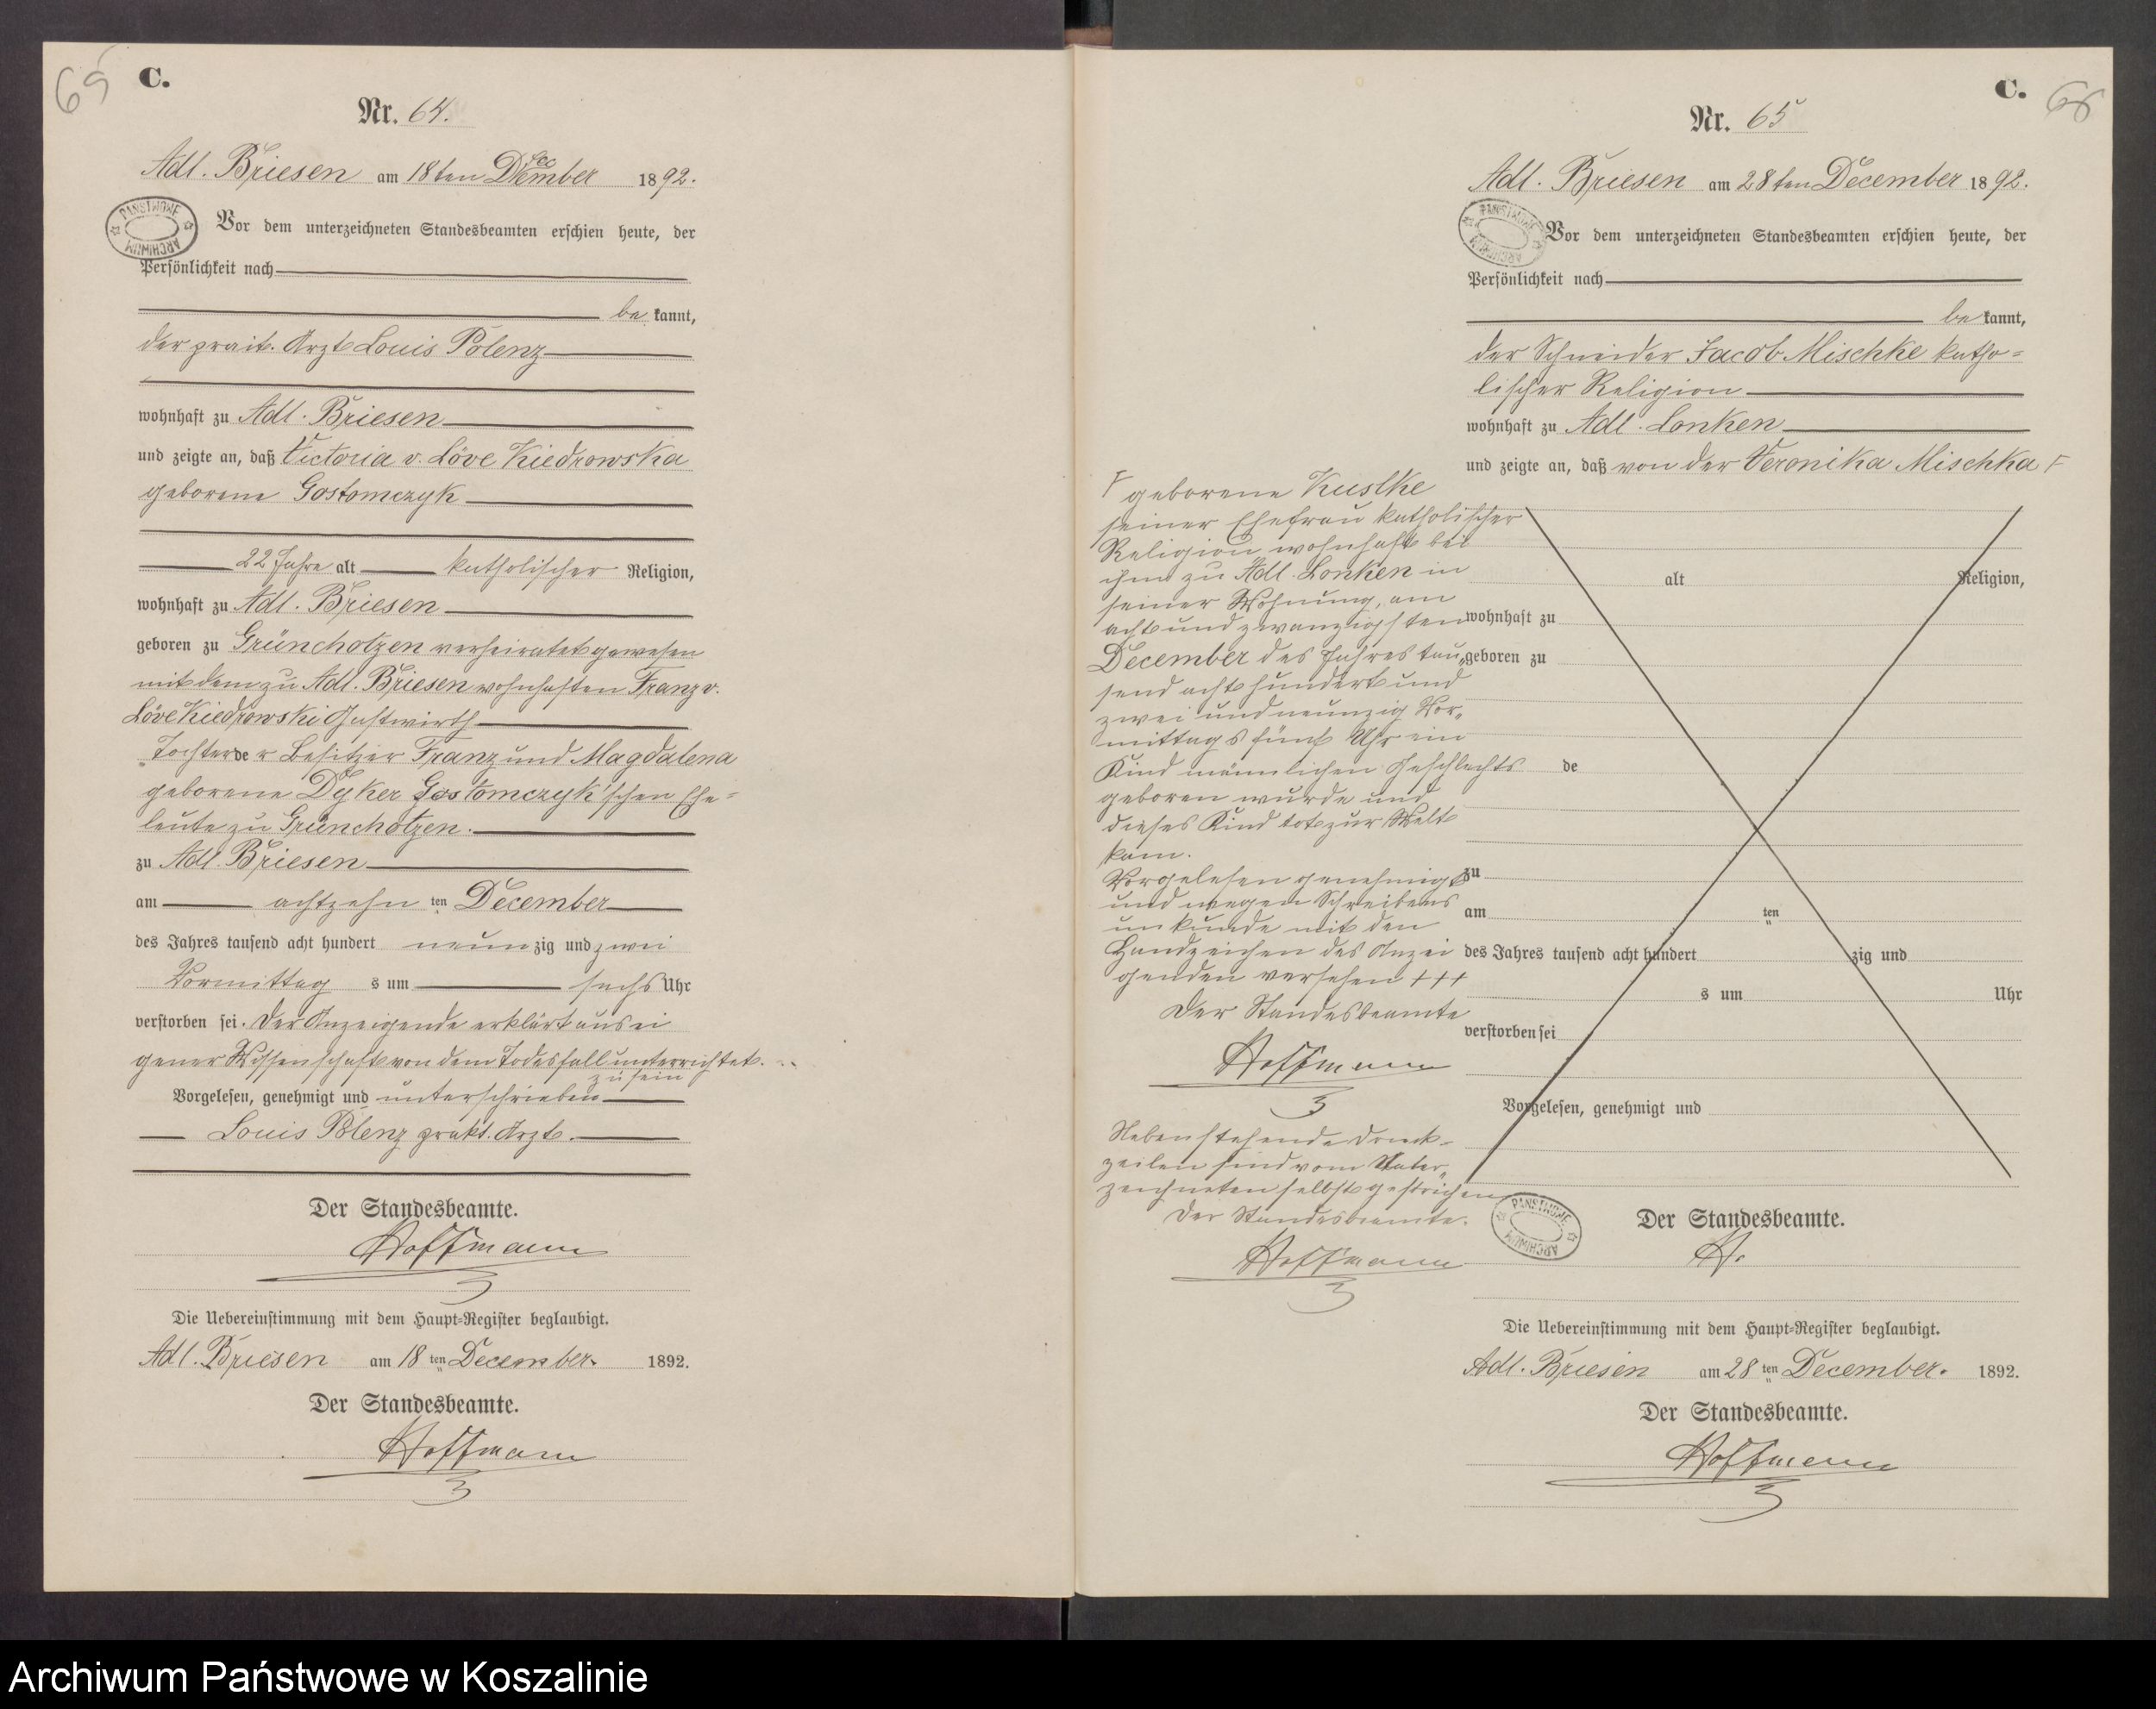 65
C.
Nr. 64.
Adl. Briesen am 18ten December 1892.
PANSTWOWE ARCHIWUM
Vor dem unterzeichneten Standesbeamten erschien heute, der
Persönlichkeit nach
be kannt,
der prakt. Arzt Louis Polenz
wohnhaft zu Adl. Briesen
und zeigte an, daß Victoria v. Löve Kiedrowska
geborene Gostomczyk
22 Jahre alt katholischer Religion,
wohnhaft zu Adl. Briesen
geboren zu Grünchotzen verheiratet gewesen
mit dem zu Adl. Briesen wohnhaften Franz v.
Löve Kiedrowski Gastwirth
Tochter der Besitzer Franz und Magdalena
geborene Dyker Gostomczyk'schen Ehe=
leute zu Grünchotzen.
zu Adl. Briesen
am achtzehn ten December
des Jahres tausend acht hundert neun zig und zwei
Vormittag s um sechs Uhr
verstorben sei. Der Anzeigende erklärt aus ei
gener Wissenschaft von dem Todesfall unterrichtet
zu sein
Vorgelesen, genehmigt und unterschrieben
Louis Polenz prakt. Arzt.
Der Standesbeamte.
Hoffmann
Die Uebereinstimmung mit dem Haupt=Register beglaubigt.
Adl. Briesen am 18 ten December. 1892.
Der Standesbeamte.
Hoffmann
C.
66
Nr. 65
Adl. Briesen am 28ten December 1892.
PANSTWOWE ARCHIWUM
Vor dem unterzeichneten Standesbeamten erschien heute, der
Persönlichkeit nach
be kannt,
der Schneider Jacob Mischke katho=
lischer Religion
wohnhaft zu Adl. Lonken
und zeigte an, daß von der Veronika Mischka
geborene Kuslke
seiner Ehefrau katholischer
Religion wohnhaft bei
ihm zu Adl. Lonken in
seiner Wohnung, am
acht und zwanzigsten
December des Jahres tau„
send acht hundert und
zwei und neunzig Vor„
mittags fünf Uhr ein
Kind männlichen Geschlechts
geboren wurde und
dieses Kind tot zur Welt
kam.
Vorgelesen genehmigt
und wegen Schreibens
unkunde mit den
Handzeichen des Anzei
genden versehen +++
Der Standesbeamte
Hoffmann
Nebenstehende Druck=
zeilen sind vom Unter„
zeichneten selbst gestrichen
Der Standesbeamte.
Hoffmann
alt Religion,
wohnhaft zu
geboren zu
de
zu
am ten
des Jahres tausend acht hundert zig und
s um Uhr
verstorben sei
Vorgelesen, genehmigt und
PANSTWOWE ARCHIWUM
Der Standesbeamte.
H.
Die Uebereinstimmung mit dem Haupt=Register beglaubigt.
Adl. Briesen am 28 ten December. 1892.
Der Standesbeamte.
Hoffmann
Archiwum Państwowe w Koszalinie